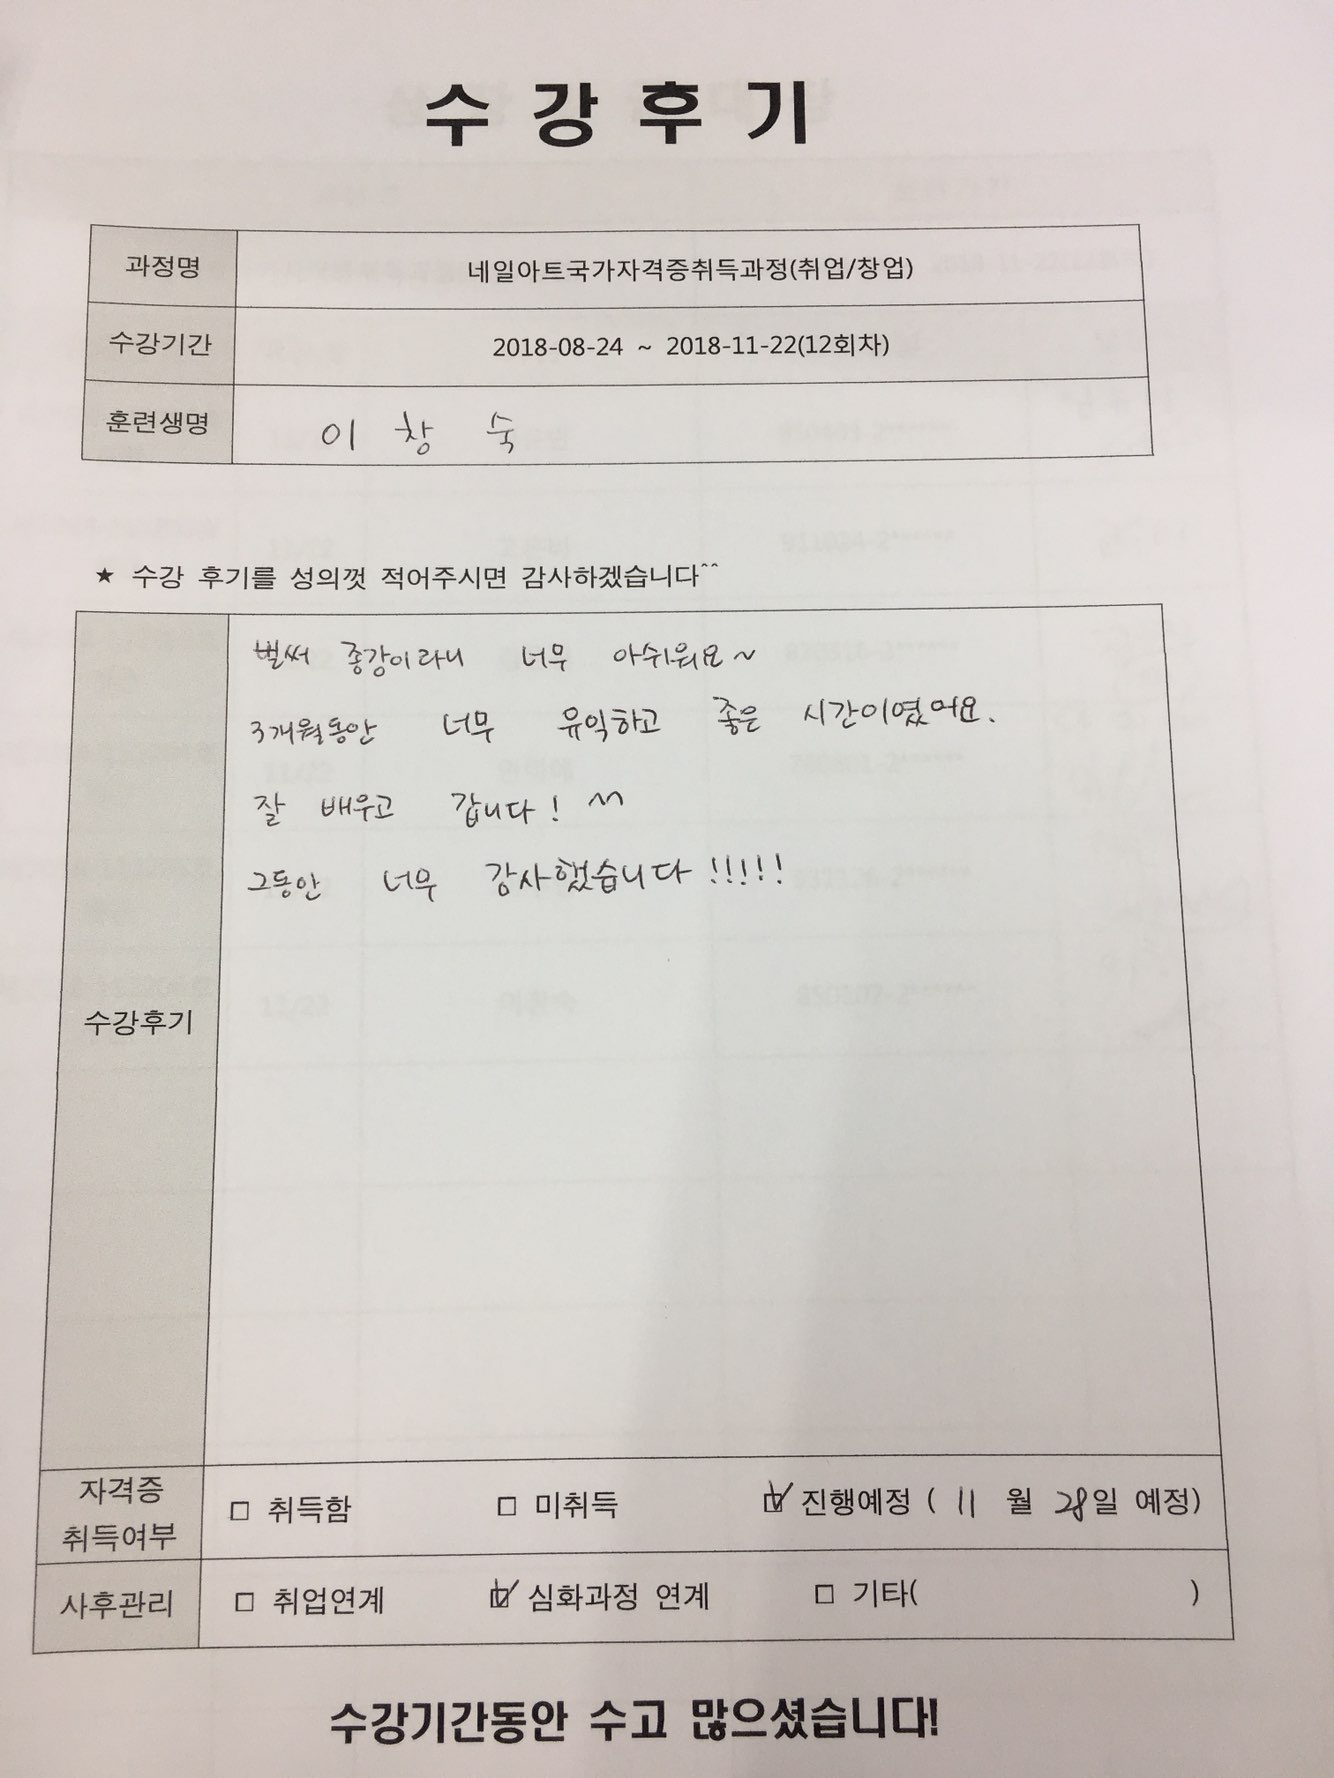 수강후기
과정명 네일아트국가자격증취득과정(취업/창업)
수강기간 2018-08-24 ~ 2018-11-22(12회차)
훈련생명 이 창 숙
★ 수강 후기를 성의껏 적어주시면 감사하겠습니다^^
벌써 종강이라니 너무 아쉬워요~
3개월동안 너무 유익하고 좋은 시간이였어요.
잘 배우고 갑니다! ^^
그동안 너무 감사했습니다!!!!!
수강후기
자격증
취득여부
□ 취득함 □ 미취득 ☑ 진행예정 ( 11 월 28일 예정)
사후관리 □ 취업연계 ☑ 심화과정 연계 □ 기타( )
수강기간동안 수고 많으셨습니다!